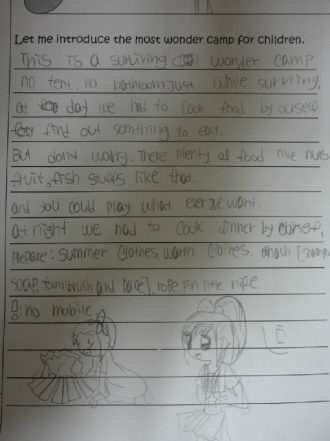 Let me introduce the most wonder camp for children.
This is a surviving wonder camp
no tent, no bathroom. Just while surviving,
at day we had to cook food by ourself
find out somthing to eat.
But dont worry. There plenty of food like nuts
fruit, fish stuffs like that.
and you could play what ever we want.
at night we had to cook dinner by ourself,
Prepare: summer clothes, warm clothes.
soap, toothbrush and Pace], rope,
!: no mobile